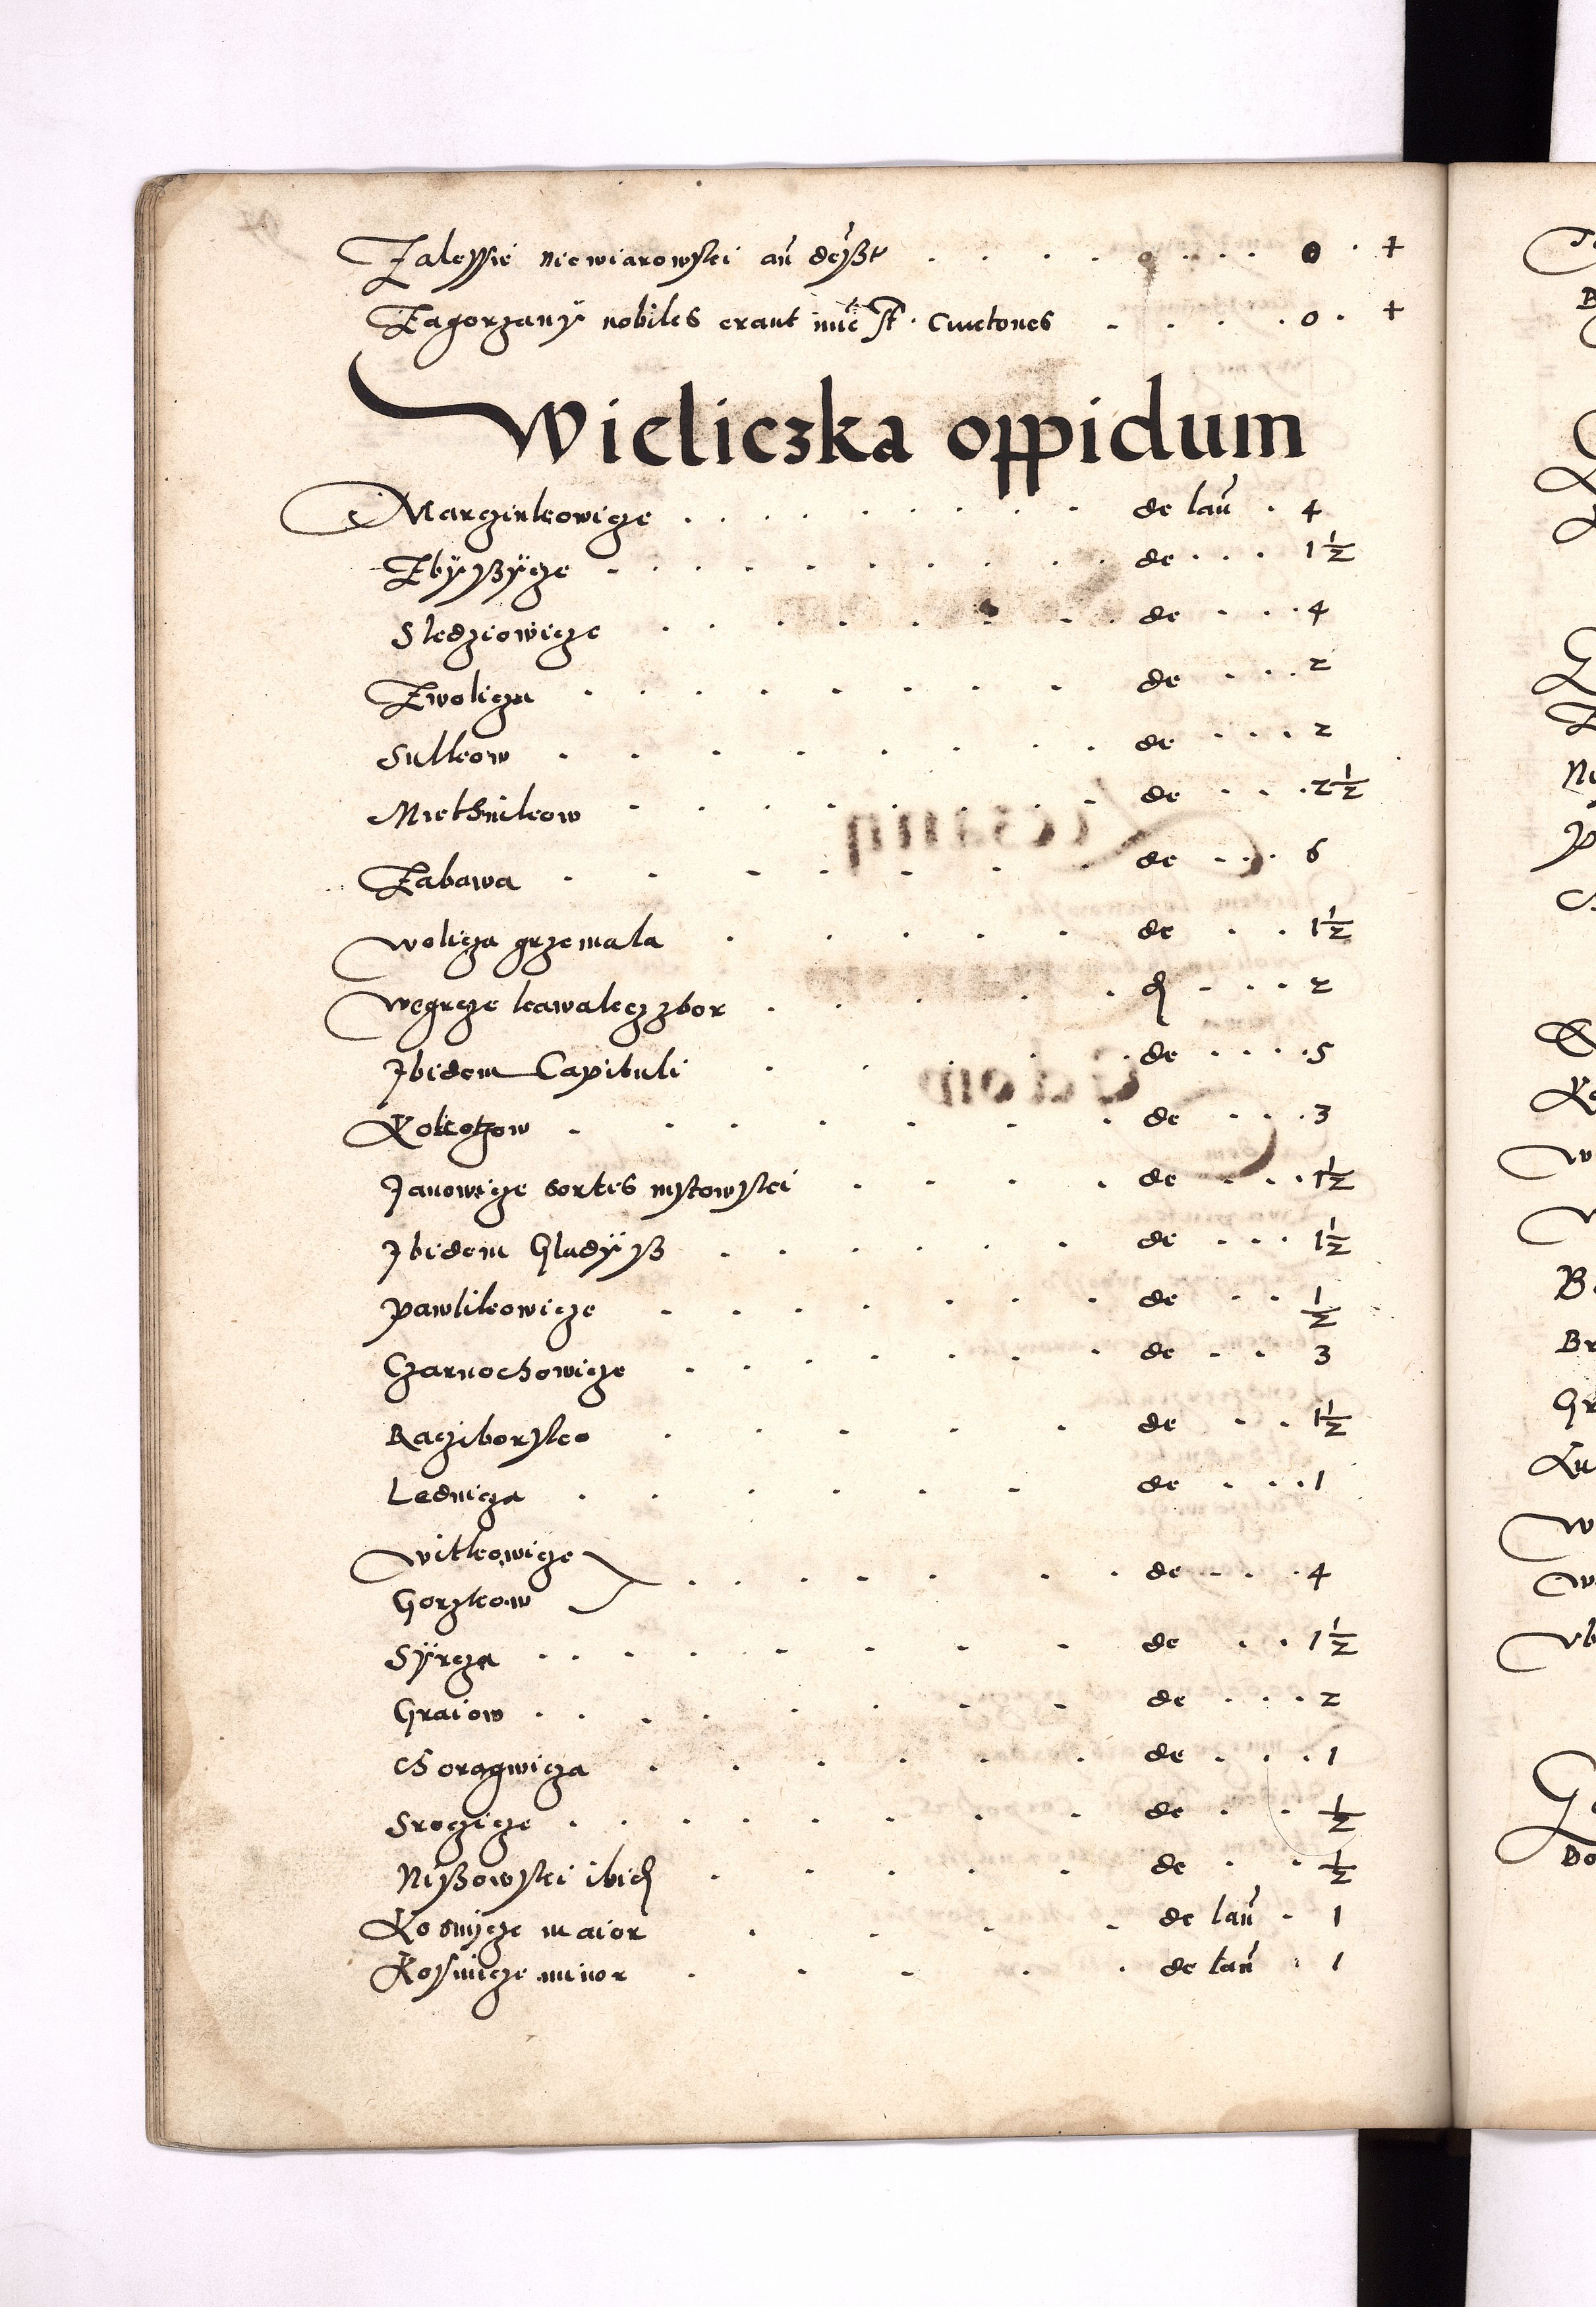 Zalessie niewiarowskj an̄ deyßt . . . . o . . . 0 . +
Zagorzanÿ nobiles erant nūc st̄ . Cmetones . . . . o . +
Wieliczka oppidum
Marczinkowicze . . . . . . . . . de lan̄ . 4
Zbÿßÿcze . . . . . . . . . de . . . 1½
Sledziowicze . . . . . . . de . . . 4
Zwolicza . . . . . . . . de . . . 2
Sulkow . . . . . . . . de . . . 2
Miethnikow . . . . . . . . de . . . 2½
Zabawa . . . . . . . de . . . 6
Wolicza grzemala . . . . . de . . 1½
Wegrcze kawalecz zbor . . . . . d . . . 2
Jbidem Capituli . . . . de . . . . 5
Kokotzow . . . . . . . de . . . 3
Janowicze sortes mstowskj . . . . de . . . 1½
Jbidem Gladÿß . . . . . . de . . . 1½
Pawlikowicze . . . . . . . de . . ½
Czarnochowicze . . . . . . . de . . 3
Racziborsko . . . . . de . . 1½
Lednicza . . . . . . de . . . 1
Witkowicze
Gorzkow . . . . . . . de . . . 4
Sÿrcza . . . . . . . de . . 1½
Graiow . . . . . . . . de . . . 2
Choragwicza . . . . . . de . . . 1
Sroczicze . . . . . . . . de . . ½
Nißowskj ibid . . . . . de . . ½
Kosnycze maior . . . . de lan̄ . 1
Kosmicze minor . . . . . de lan̄ . 1